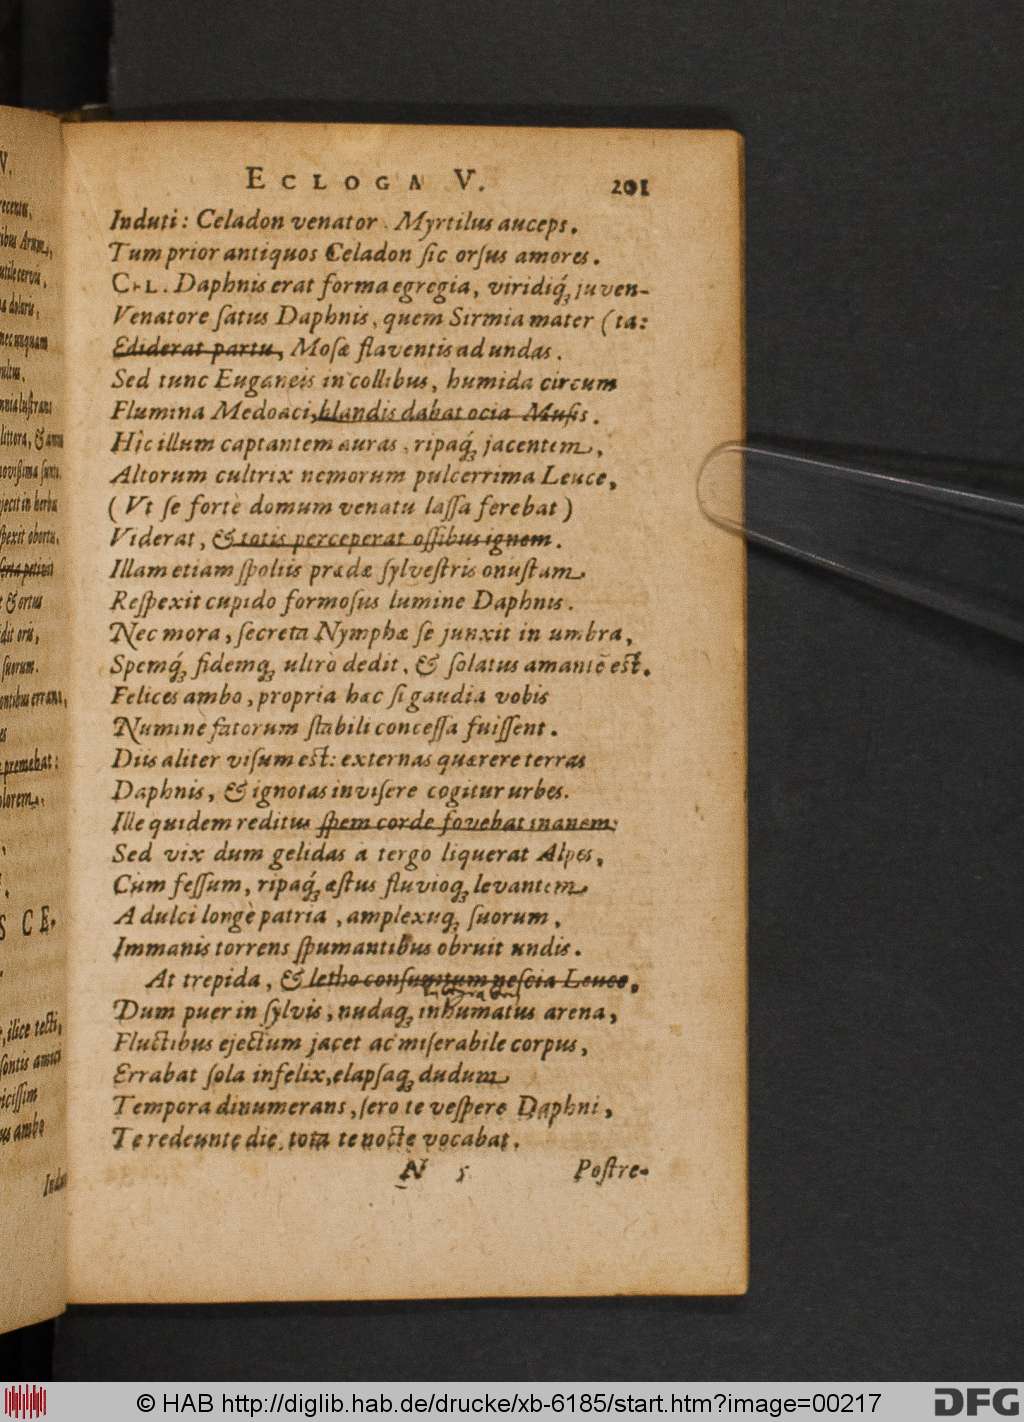 ECLOGA V. 201
Induti: Celadon venator. Myrtilus auceps.
Tum prior antiquos Celadon ſic orſus amores.
CEL. Daphnis erat forma egregia, viridiq́ꝫ juven-
Venatore ſatus Daphnis, quem Sirmia mater (ta:
Ediderat partu, Moſæ flaventis ad undas.
Sed tunc Euganeis in collibus, humida circum
Flumina Medoaci, blandis dabat ocia Muſis.
Hic illum captantem auras, ripaq́ꝫ jacentem,
Altorum cultrix nemorum pulcerrima Leuce,
(Vt ſe fortè domum venatu laſſa ferebat)
Viderat, & totis perceperat oſſibus ignem.
Illam etiam ſpoliis prædæ ſylveſtris onuſtam
Reſpexit cupido formoſus lumine Daphnis.
Nec mora, ſecreta Nymphæ ſe junxit in umbra,
Spemq́ꝫ fidemqꝫ ultrò dedit, & ſolatus amantē eſt.
Felices ambo, propria hac ſi gaudia vobis
Numine fatorum ſtabili conceſſa fuiſſent.
Diis aliter viſum eſt: externas quærere terras
Daphnis, & ignotas inviſere cogitur urbes.
Ille quidem reditus ſpem corde fovebat inanem;
Sed vix dum gelidas a tergo liquerat Alpes,
Cùm feſſum, ripaq́ꝫ æſtus fluvioqꝫ levantem
A dulci longè patria, amplexuqꝫ ſuorum,
Immanis torrens ſpumantibus obruit undis.
At trepida, & letho conſumtum neſcia Leuce,
Dum puer in ſylvis, nudaqꝫ inhumatus arena,
Fluctibus ejectum jacet ac miſerabile corpus,
Errabat ſola infelix, elapſaqꝫ dudum
Tempora dinumerans, ſero te veſpere Daphni,
Te redeunte die, tota te nocte vocabat.
N 5 Poſtre-
© HAB http://diglib.hab.de/drucke/xb-6185/start.htm?image=00217
DFG